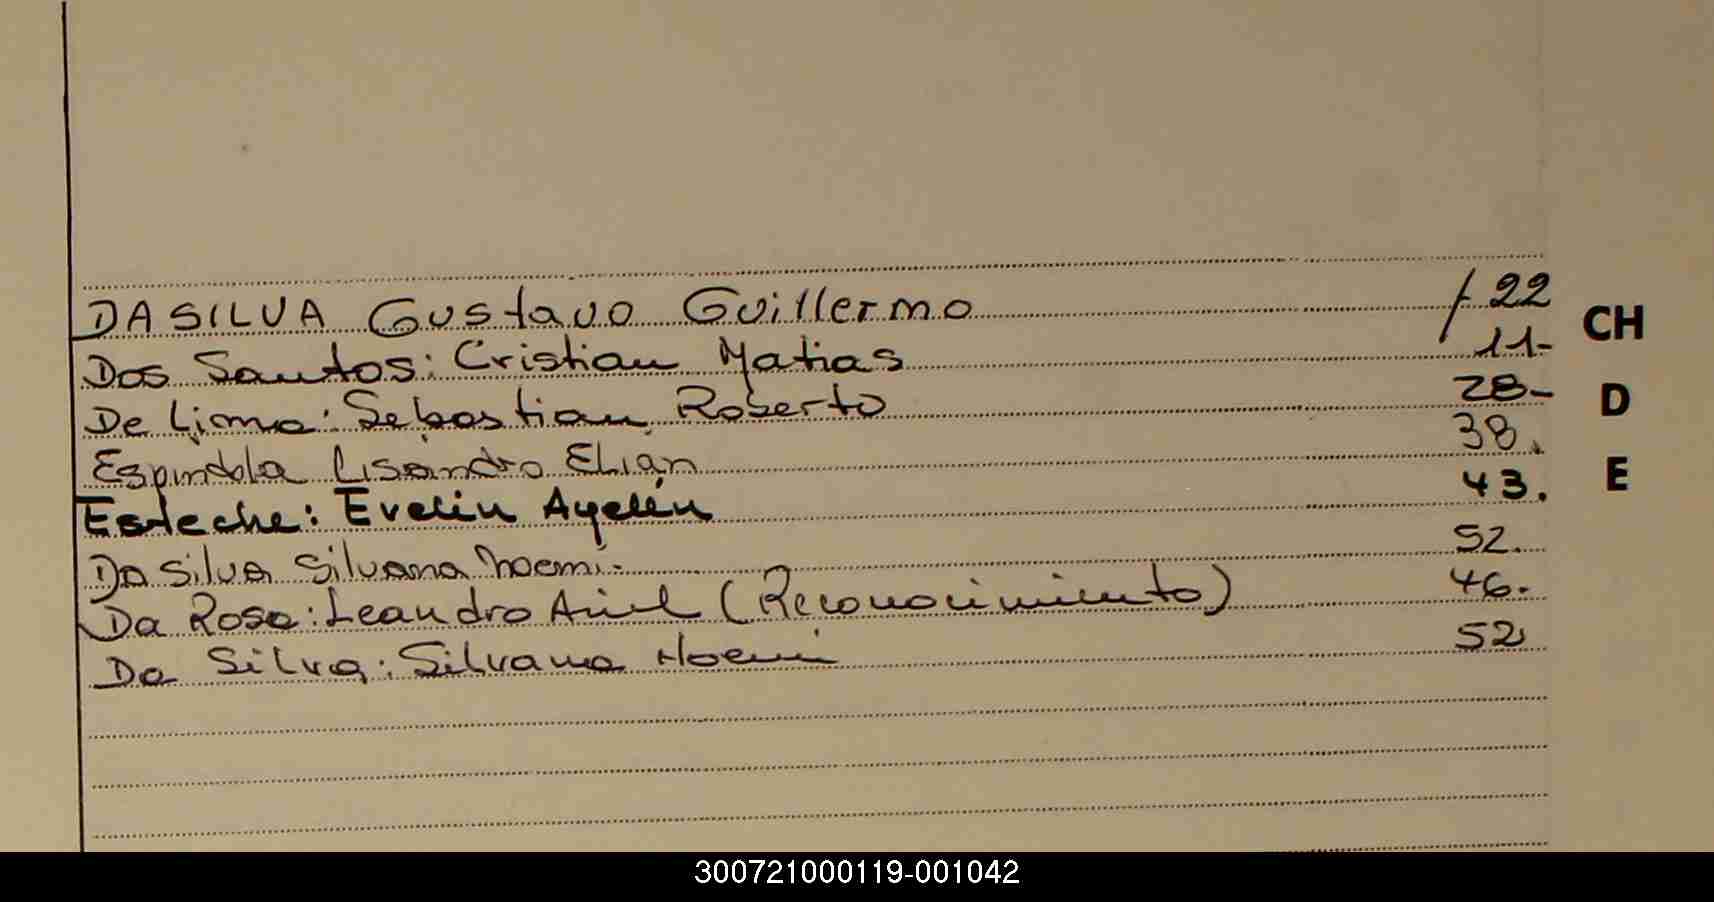 DASILVA Gustavo Guillermo / 22
Dos Santos: Cristian Matias 11-
CH
De Lima: Sebastian Roberto 28-
D
Espindola Lisandro Elian 38.
E
Esteche: Evelin Ayelén 43.
Da Silva Silvana Noemi. 52.
Da Rosa: Leandro Ariel (Reconocimiento) 46.
Da Silva: Silvana Noemi 52
300721000119-001042